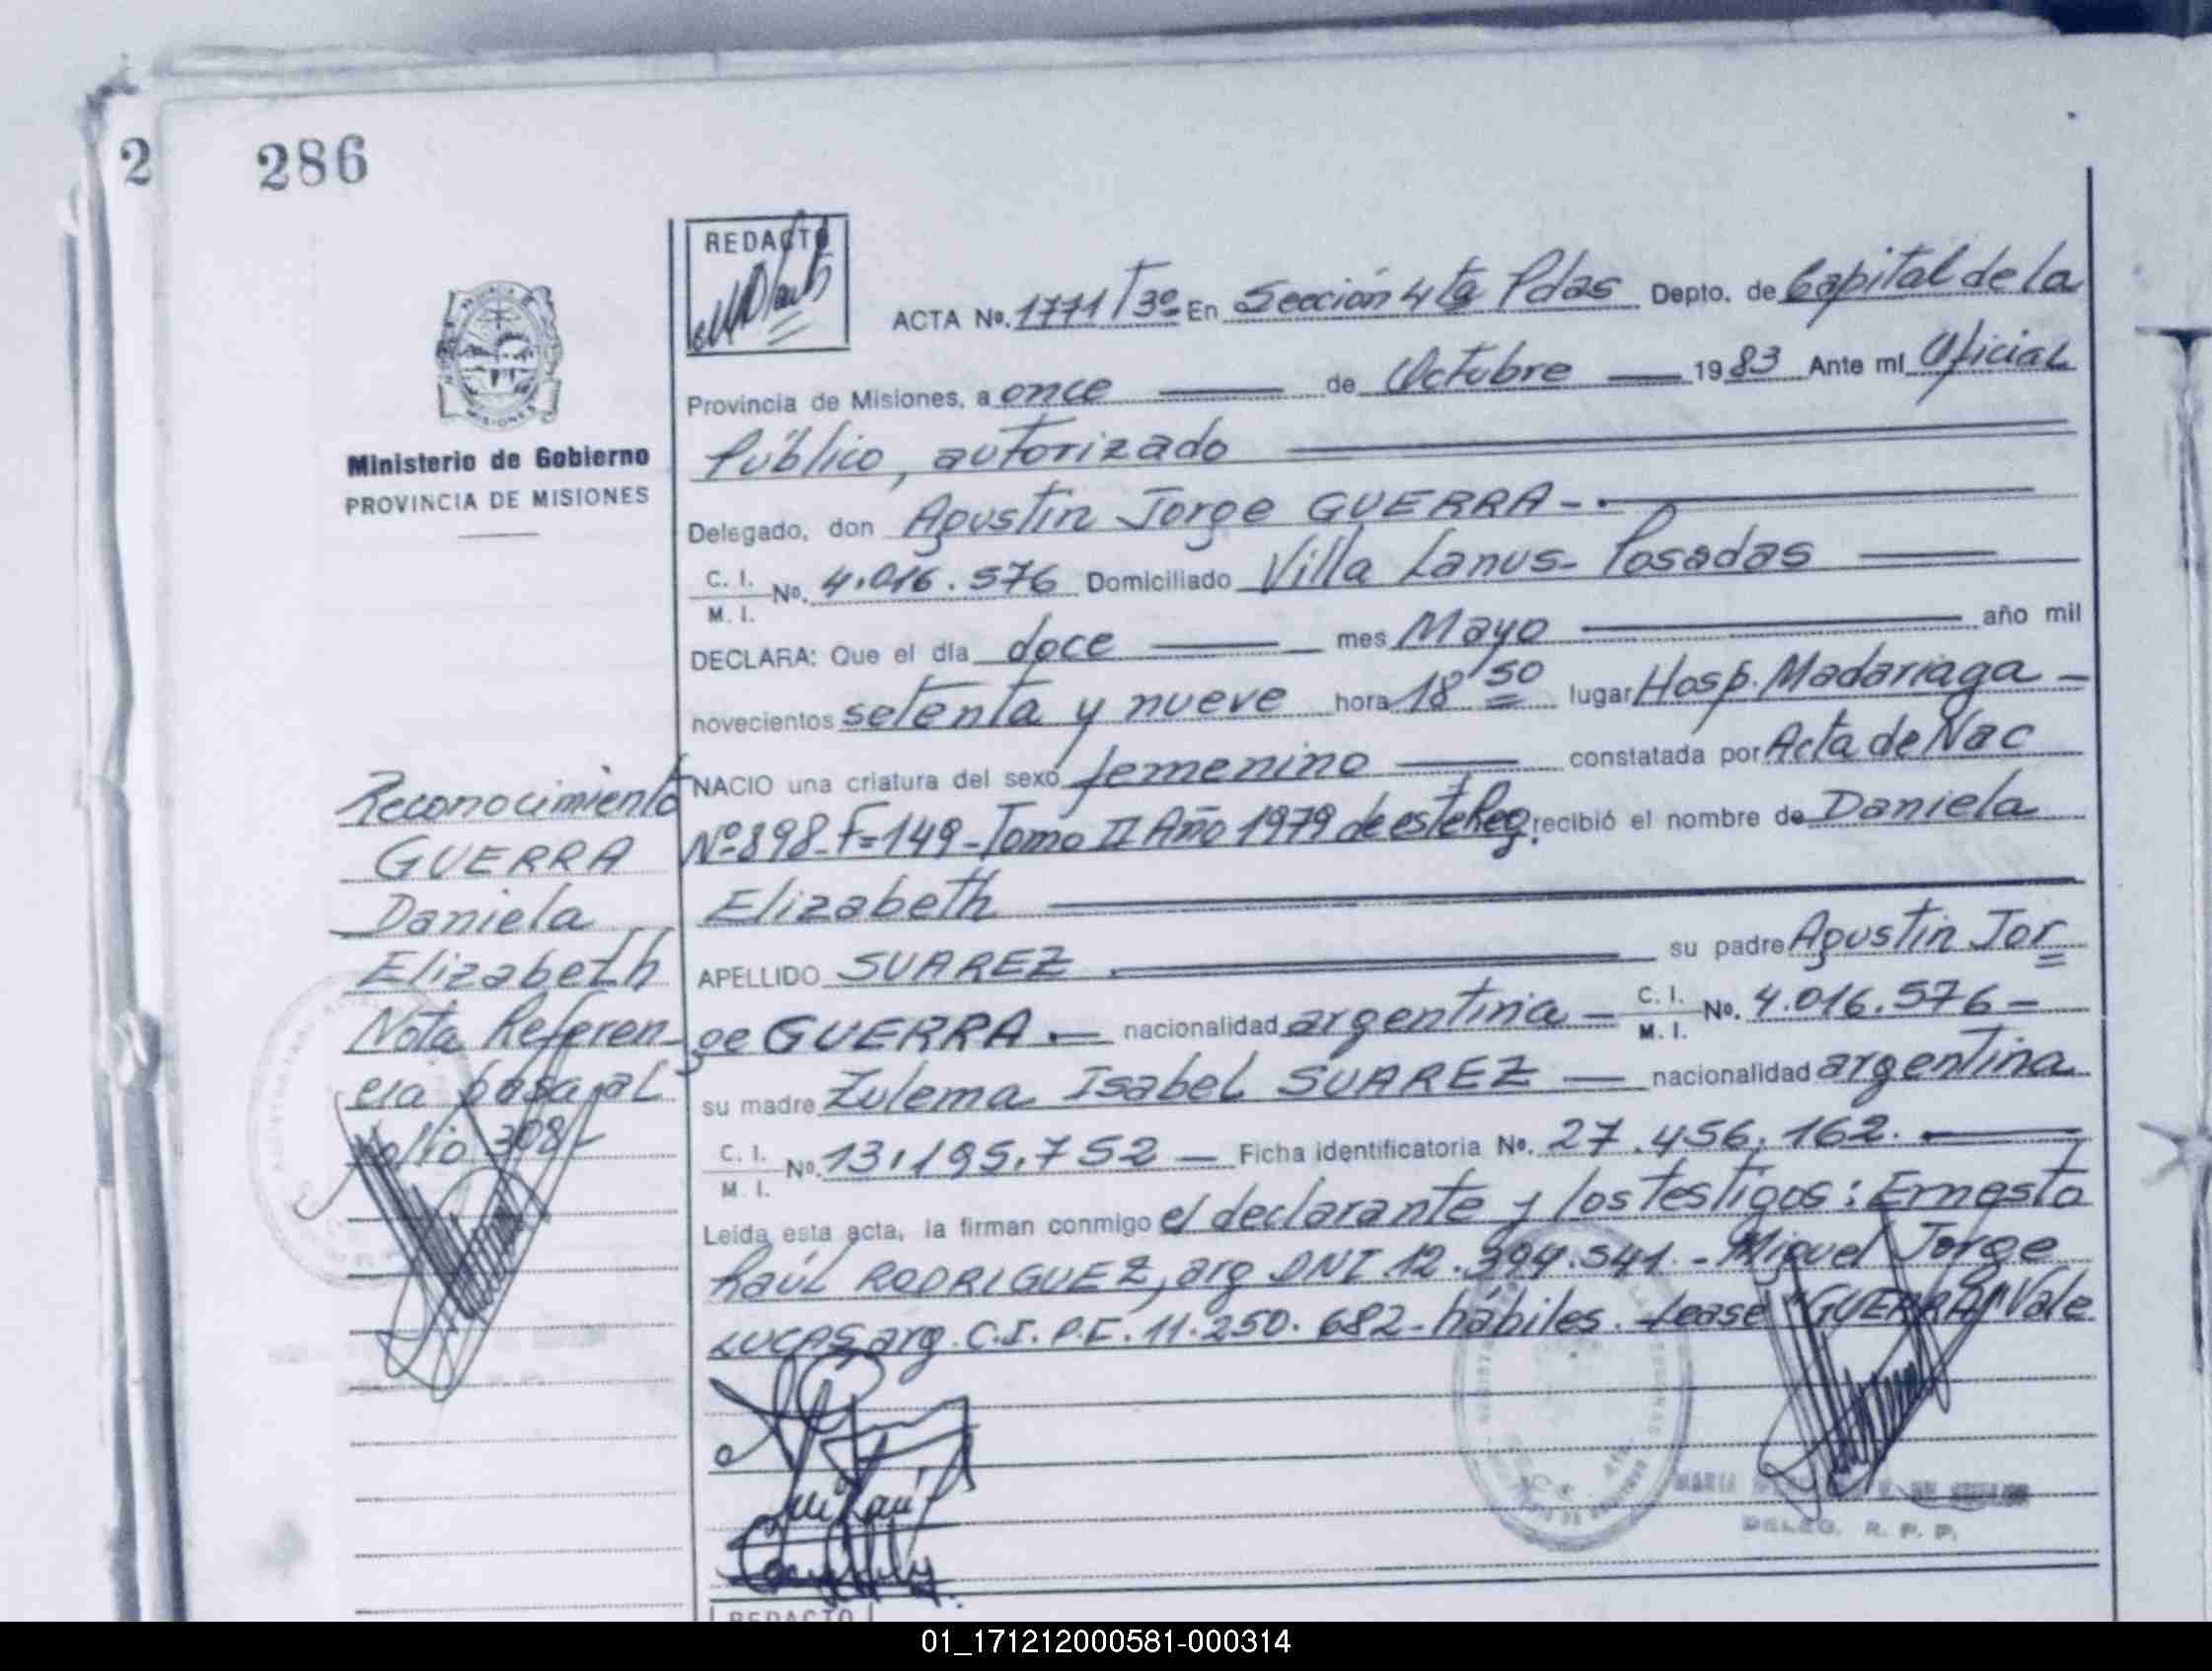 2 286
REDACTO
ACTA No. 1771 T3º En Sección 4ta Pdas Depto. de Capital de la
Provincia de Misiones, a once de Octubre 1983 Ante mí Oficial
Público, autorizado
Ministerio de Gobierno
PROVINCIA DE MISIONES
Delegado, don Agustin Jorge GUERRA-.
C. I.
M. I. No. 4.016.576 Domiciliado Villa Lanus- Posadas
DECLARA: Que el día doce mes Mayo año mil
novecientos setenta y nueve hora 18'50 lugar Hosp. Madariaga -
NACIO una criatura del sexo femenino constatada por Acta de Nac
Nº 898-F=149-Tomo II Año 1979 de este Reg. recibió el nombre de Daniela
Elizabeth
APELLIDO SUAREZ su padre Agustin Jor
ge GUERRA.- nacionalidad argentina - C. I.
M. I. No. 4.016.576-
su madre Zulema Isabel SUAREZ - nacionalidad argentina
C. I.
M. I. No. 13.195.752 - Ficha identificatoria No. 27.456.162.
Leida esta acta, la firman conmigo el declarante y los testigos: Ernesto
Raúl RODRIGUEZ, arg DNI 12.394.541.-Miguel Jorge
LUCAS arg. C.I.P.E. 11.250.682-hábiles. Lease "GUERRA" Vale
Reconocimiento
GUERRA
Daniela
Elizabeth
Nota Referen-
cia pasa al
folio 308-
MARIA
DELEG. R. P. P.
REDACTO
01_171212000581-000314